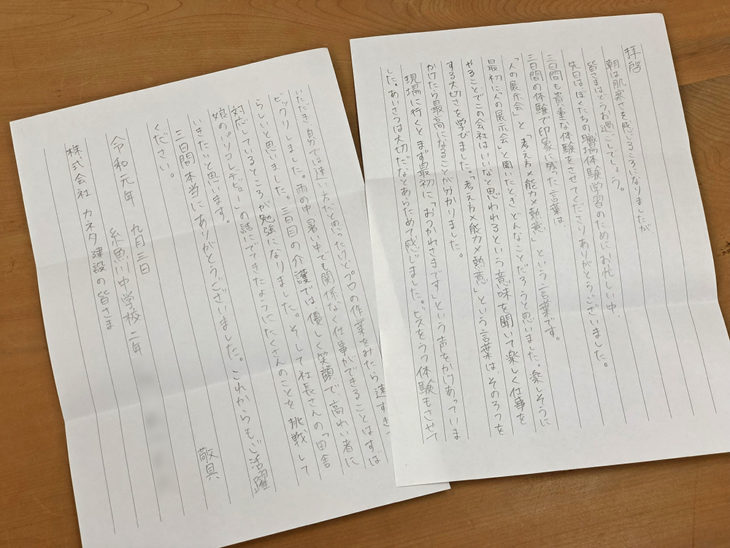 拝啓
朝は肌寒さを感じるころになりましたが
皆さまはどうお過ごしでしょう。
先日はぼくたちの職場体験学習のためにお忙しい中、
三日間も貴重な体験をさせてくださりありがとうございました。
三日間の体験で印象に残った言葉は、
「人の展示会」と「考え方×能力×熱意」という言葉です。
最初に人の展示会と聞いたときどんなことだろうと思いました。楽しそうに
やることでこの会社はいいなと思われるという意味を聞いて楽しく仕事を
する大切さを学びました。「考え方×能力×熱意」という言葉はその3つを
かけたら最高になることが分かりました。
現場に行くとまず最初に「おつかれさまです」という声をかけあっていま
した。あいさつは大切だなとあらためて感じました。ビスをうつ体験もさせて
いただき、自分では速い方だと思ったけどプロの作業をみたら速すぎて
ビックリしました。雨の中、暑い中でも関係なく仕事ができることはすば
らしいと思いました。三日目の介護では優しく笑顔で高れい者に
対応しているところが勉強になりました。そして社長さんの「田舎
娘のパリコレデビュー」の話にでてきたようにたくさんのことを挑戦して
いきたいと思います。
三日間本当にありがとうございました。これからもご活躍
ください。
敬具
令和元年 九月三日
糸魚川中学校 二年
株式会社 カネタ建設の皆さま